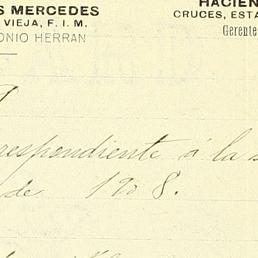 S MERCEDES
VIEJA, F. I. M.
ONIO HERRAN
HACIEN
CRUCES, ESTA
Gerente
respondiente á la s
de 1908.